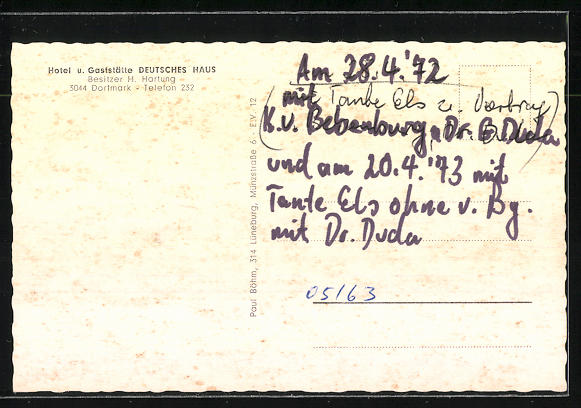 Hotel u. Gaststätte DEUTSCHES HAUS
Besitzer H. Hartung
3044 Dorfmark - Telefon 232
Paul Böhm, 314 Lüneburg, Münzstraße 6 E.V. 12
Am 28.4.'72
mit Tante Els u.
(K.v. Bebenburg, Dr. Duda
und am 20.4.'73 mit
Tante Els ohne v. Bg.
mit Dr. Duda
05/63